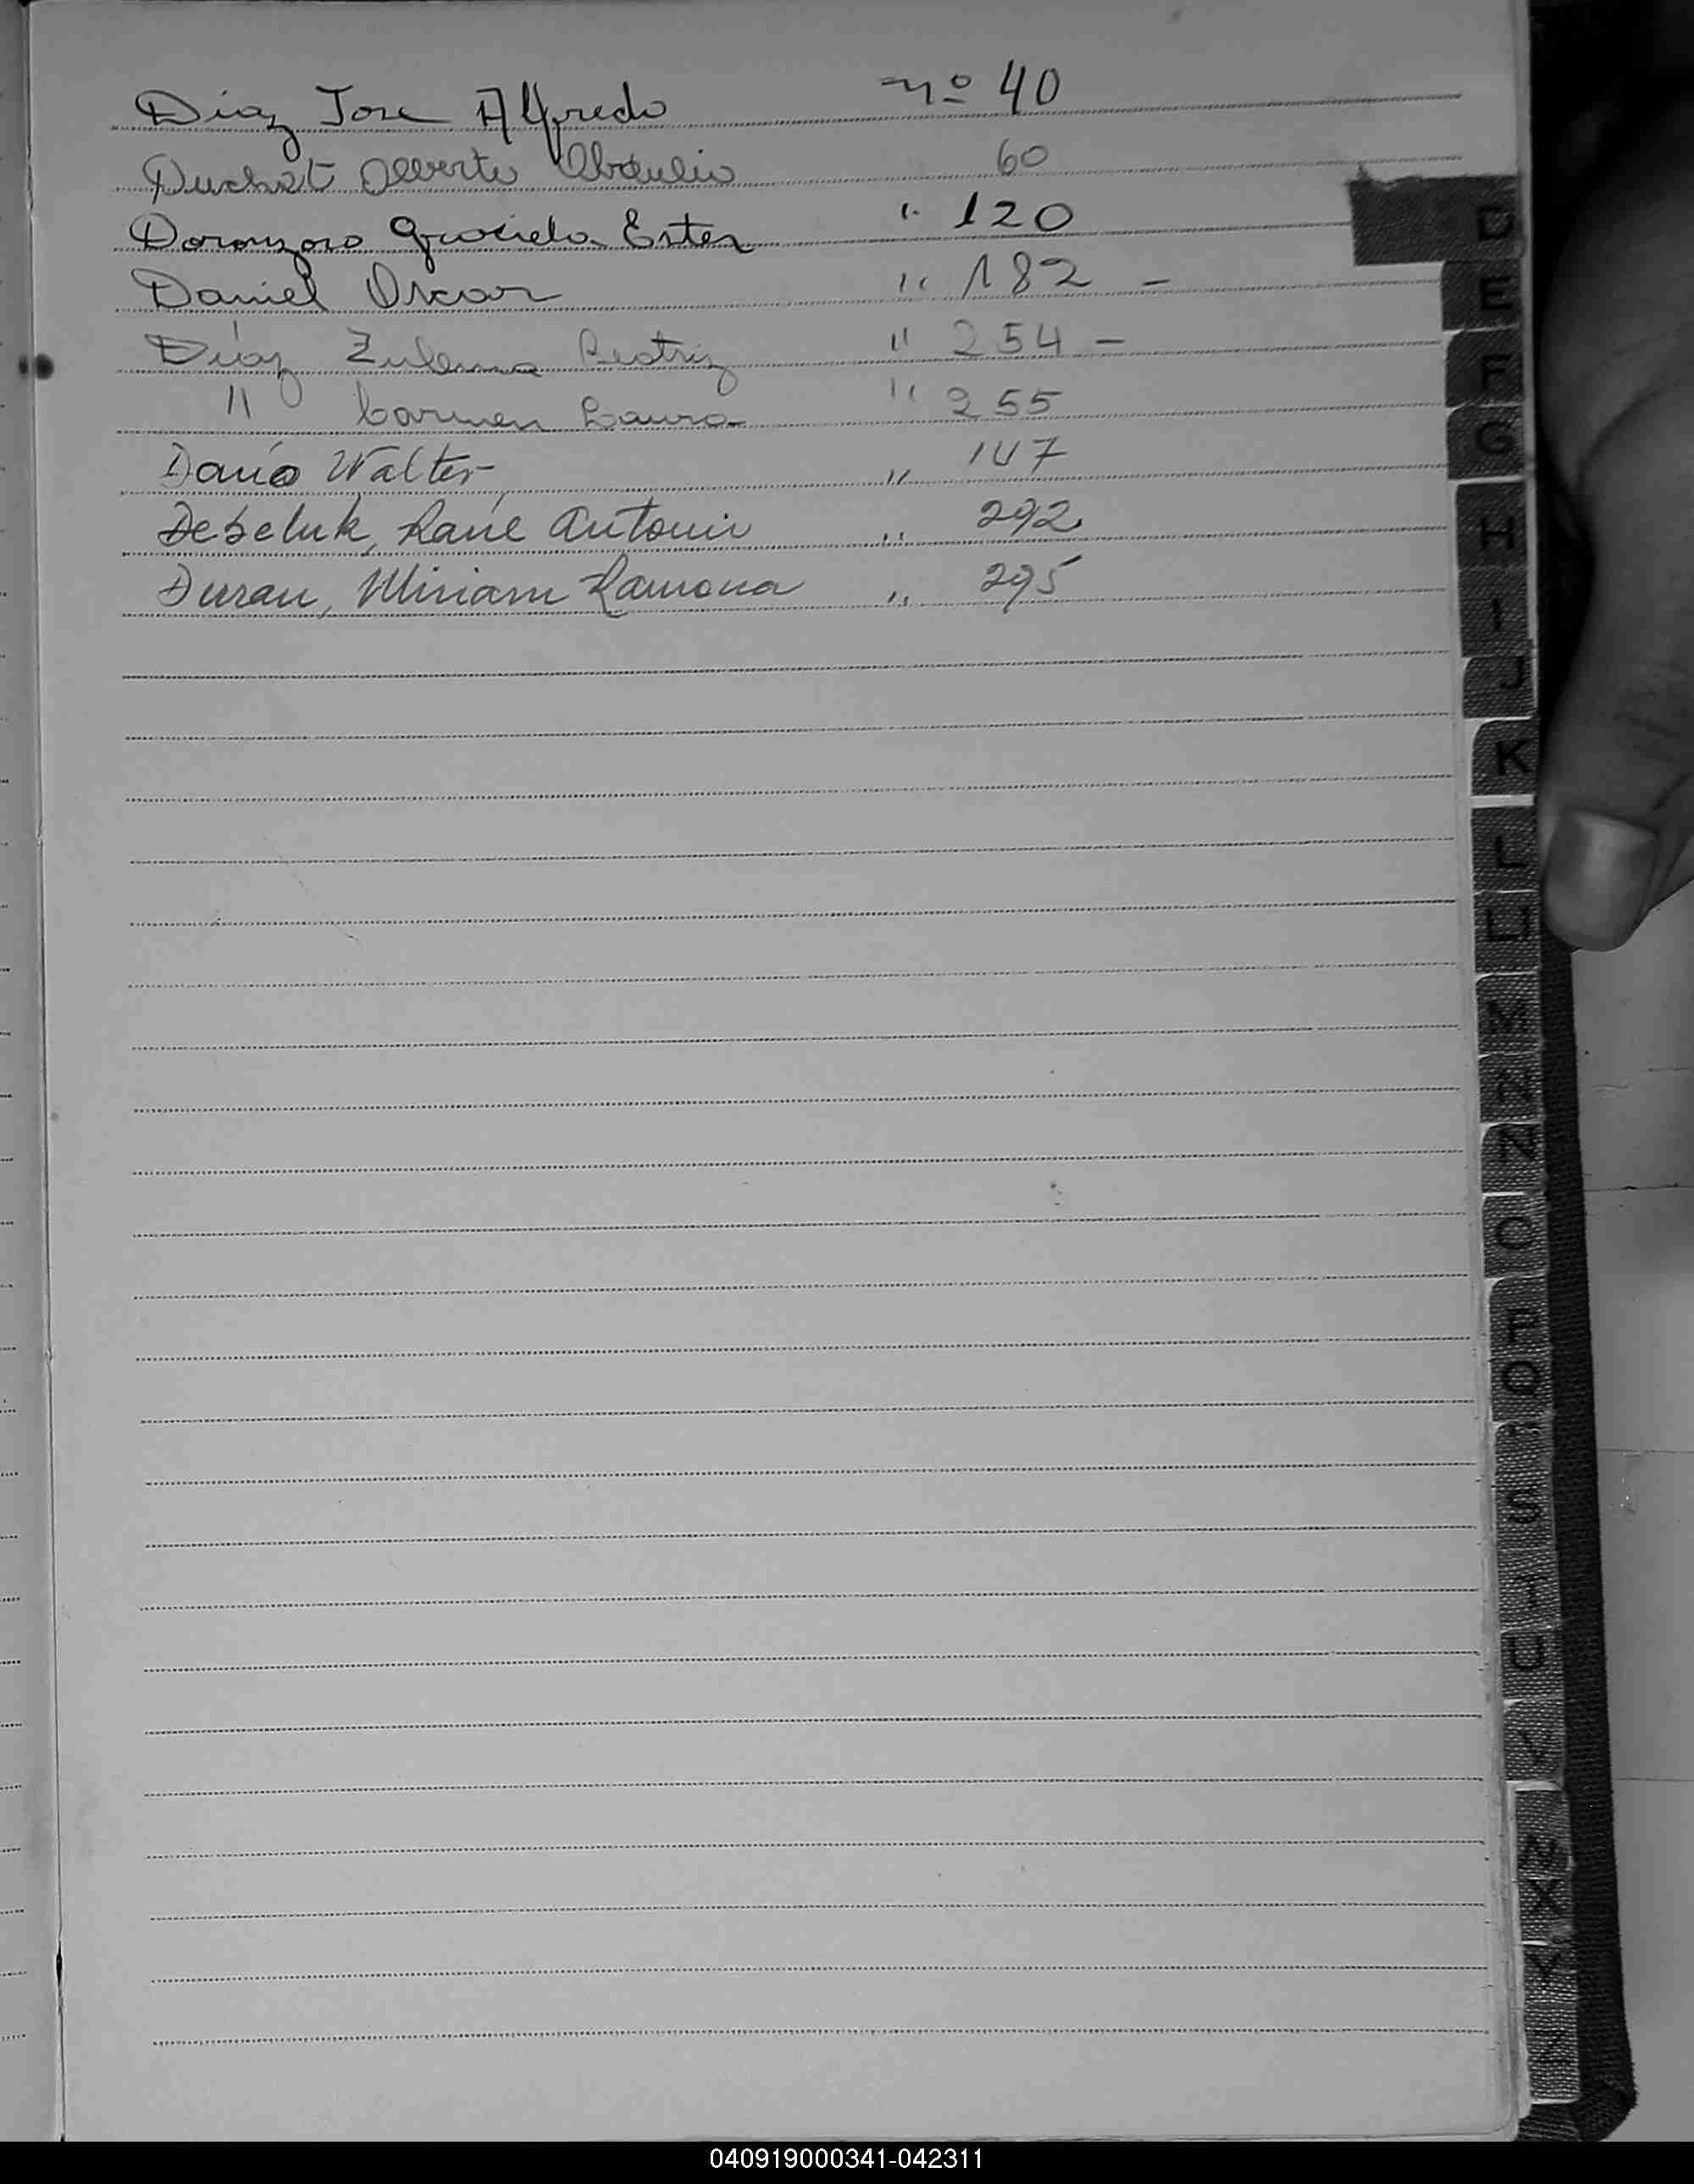 Diaz Jose Alfredo nº 40
Duchat Alberto Obdulio 60
Doronzoro Graciela Ester " 120
Daniel Oscar " 182 -
Díaz Zulema Beatriz " 254 -
" Carmen Laura " 255
Darío Walter " 147
Debeluk, Raúl Antonio " 292
Duran, Miriam Ramona " 295
D
E
F
G
H
I
J
K
L
LL
M
N
Ñ
O
P
Q
R
S
T
U
V
W
X
Y
Z
040919000341-042311